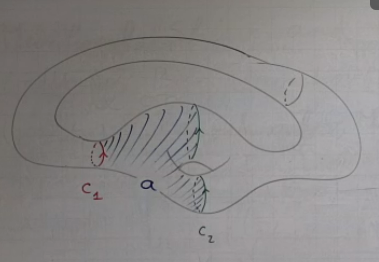 C₁
a
C₂